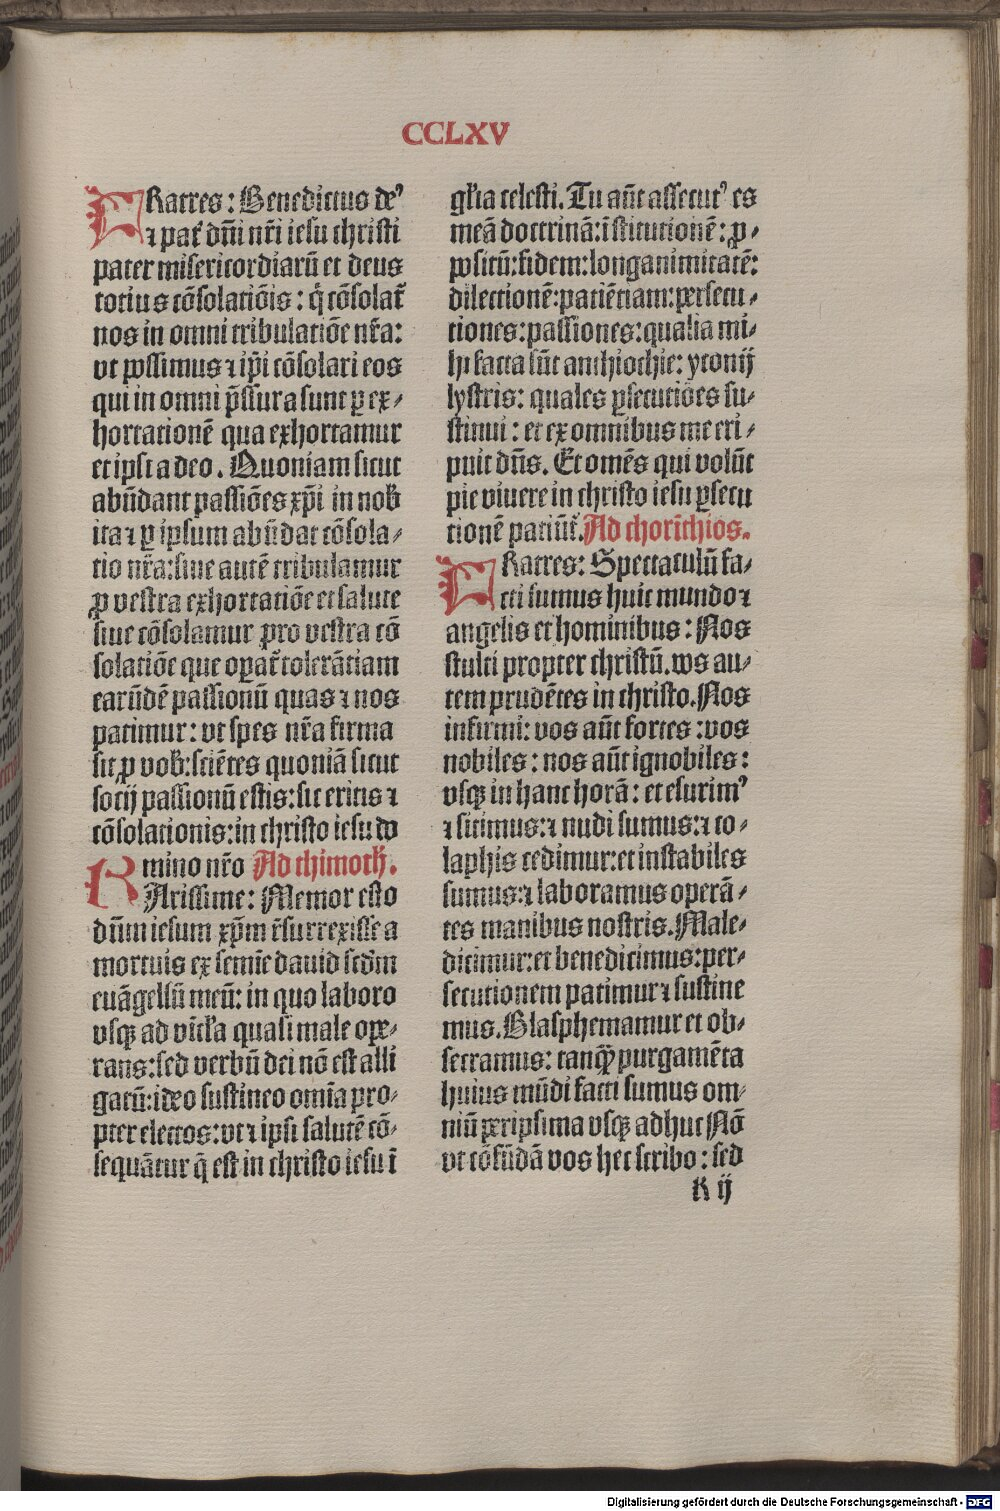 CCLXV
FRatres: Benedictus de⁹
⁊ pat̃ dñi nr̃i iesu christi
pater misericordiarũ et deus
totius cõsolatiõis: q̃ cõsolat̃
nos in omni tribulatiõe nr̃a:
vt possimus ⁊ ip̃i cõsolari eos
qui in omni p̃ssura sunt ꝑ ex⸗
hortationẽ qua exhortamur
et ipsi a deo. Quoniam sicut
abũdant passiões xp̃i in nob̃
ita ⁊ ꝑ ipsum abũdat cõsola⸗
tio nr̃a: siue autẽ tribulamur
ꝓ vestra exhortatiõe et salute
siue cõsolamur pro vestra cõ
solatiõe que oꝑat̃ tolerãtiam
earũdẽ passionũ quas ⁊ nos
patimur: vt spes nr̃a firma
sit ꝓ vob̃: sciẽtes quoniã sicut
socij passionũ estis: sic eritis ⁊
cõsolationis: in christo iesu do
mino nr̃o Ad thimoth̃.
KArissime: Memor esto
dñm iesum xp̃m r̃surrexisse a
mortuis ex semĩe dauid scd̃m
euãgeliũ meũ: in quo laboro
vsqꝫ ad vĩcl̃a quasi male ope⸗
rans: sed verbũ dei nõ est alli
gatũ: ideo sustineo omĩa pro⸗
pter electos: vt ⁊ ipsi salutẽ cõ⸗
sequãtur q̃ est in christo iesu ĩ
gl̃ia celesti. Tu aũt assecut⁹ es
meã doctrinã: ĩstitutionẽ: ꝓ⸗
positũ: fidem: longanimitatẽ:
dilectionẽ: patiẽtiam: persecu⸗
tiones: passiones: qualia mi⸗
hi facta sũt anthiochie: yconij
lystris: quales ꝑsecutiões su⸗
stinui: et ex omnibus me eri⸗
puit dñs. Et omẽs qui volũt
pie viuere in christo iesu ꝑsecu
tionẽ patiũt̃. Ad chorĩthios.
FRatres: Spectaculũ fa⸗
cti sumus huic mundo ⁊
angelis et hominibus: Nos
stulti propter christũ. vos au⸗
tem prudẽtes in christo. Nos
infirmi: vos aũt fortes: vos
nobiles: nos aũt ignobiles:
vsqꝫ in hanc horã: et esurim⁹
⁊ sitimus: ⁊ nudi sumus: ⁊ co⸗
laphis cedimur: et instabiles
sumus: ⁊ laboramus operã⸗
tes manibus nostris. Male⸗
dicimur: et benedicimus: per⸗
secutionem patimur ⁊ sustine
mus. Blasphemamur et ob⸗
secramus: tanqꝫ̃ purgamẽta
huius mũdi facti sumus om⸗
niũ peripsima vsqꝫ adhuc Nõ
vt cõfũdã vos hec scribo: sed
K ij
Digitalisierung gefördert durch die Deutsche Forschungsgemeinschaft - DFG